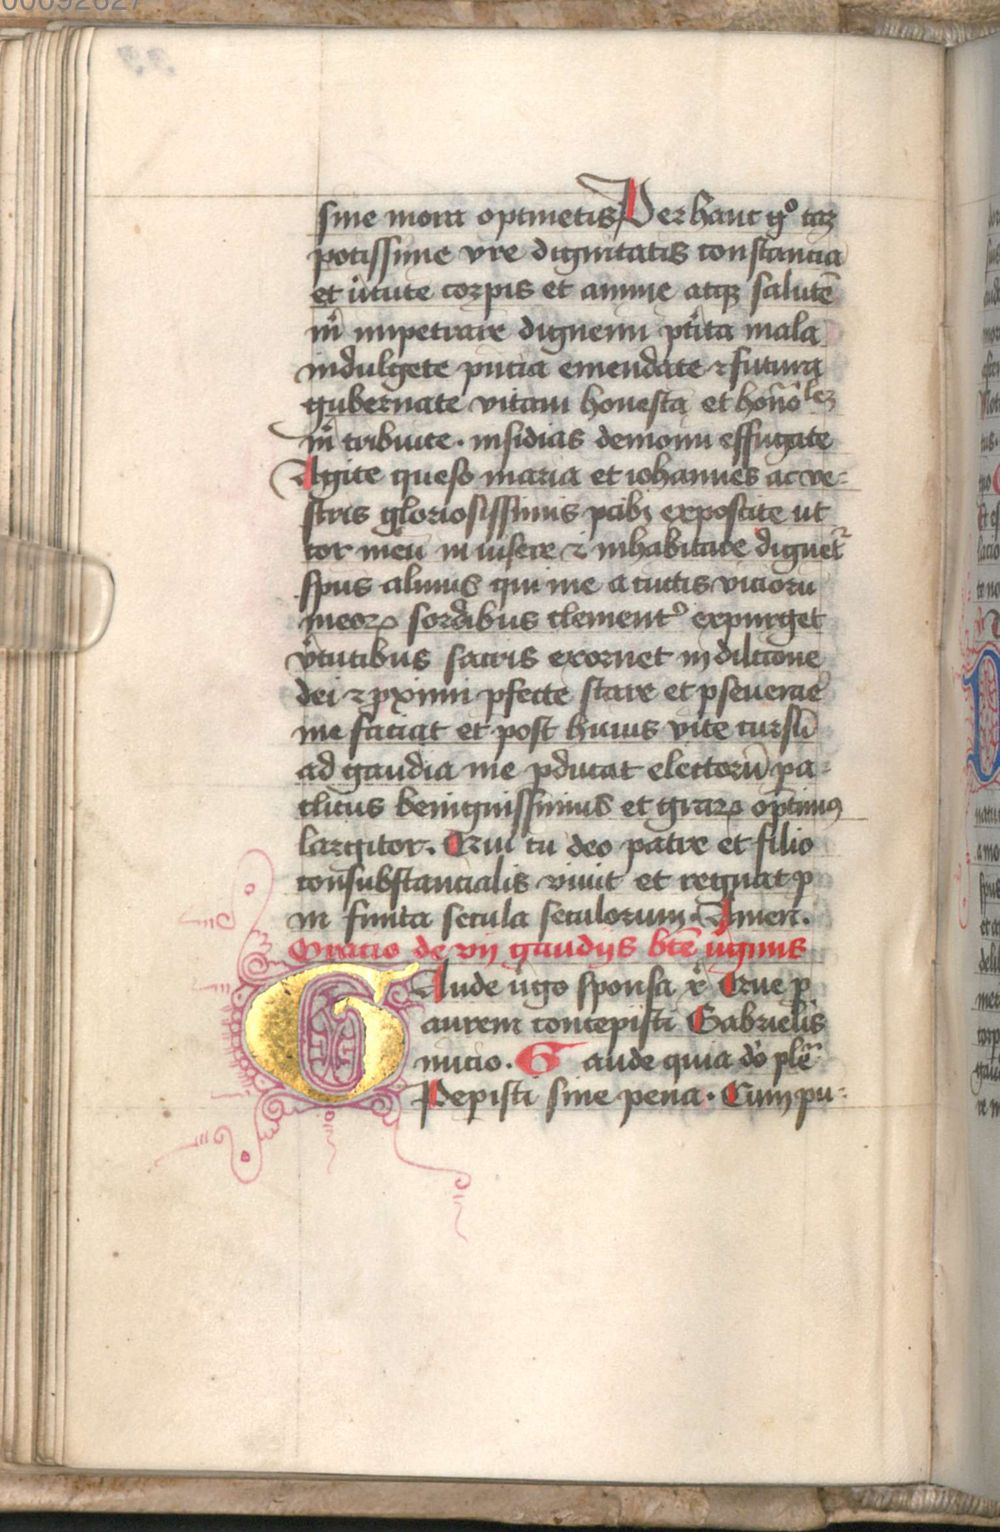 sine mora optinetis Per hanc g° taz
potissime vre dignitatis constancia
et v̓tute corpis et anime atqꝫ salutē
m̓ impetrare dignemi pt̓ita mala
indulgete pn̄cia emendate ⁊ futura
gubernate vitam honestā et honōlez
m̓ tribuite. insidias demonu effugate
Agite queso maria et iohannes ac ve-
stris gloriosissimis pcibꝫ exposcite ut
cor meū inuisere ⁊ inhabitare dignet᷑
spus almus qui me a cūctis vicioru
meoꝝ sordibus clement᷒ expurget
v̓tutibus sacris exornet in dilcione
dei ⁊ pximi pfecte stare et pseuerae
me faciat et post huius vite cursū
ad gaudia me pducat electorū pa-
clitus benignissimus et graꝝ optimꝰ
largitor. Qui cū deo patre et filio
consubstancialis viuit et regnat p
in finita secula seculorum. Amen.
Oracio de vij gaudijs bt̄e v̓ginis
GAude v̓go sponsa x̓ Que p
aurem concepisti Gabrielis
nūcio. Gaude quia d̓o plē
Pepisti sine pena. Cum pu-